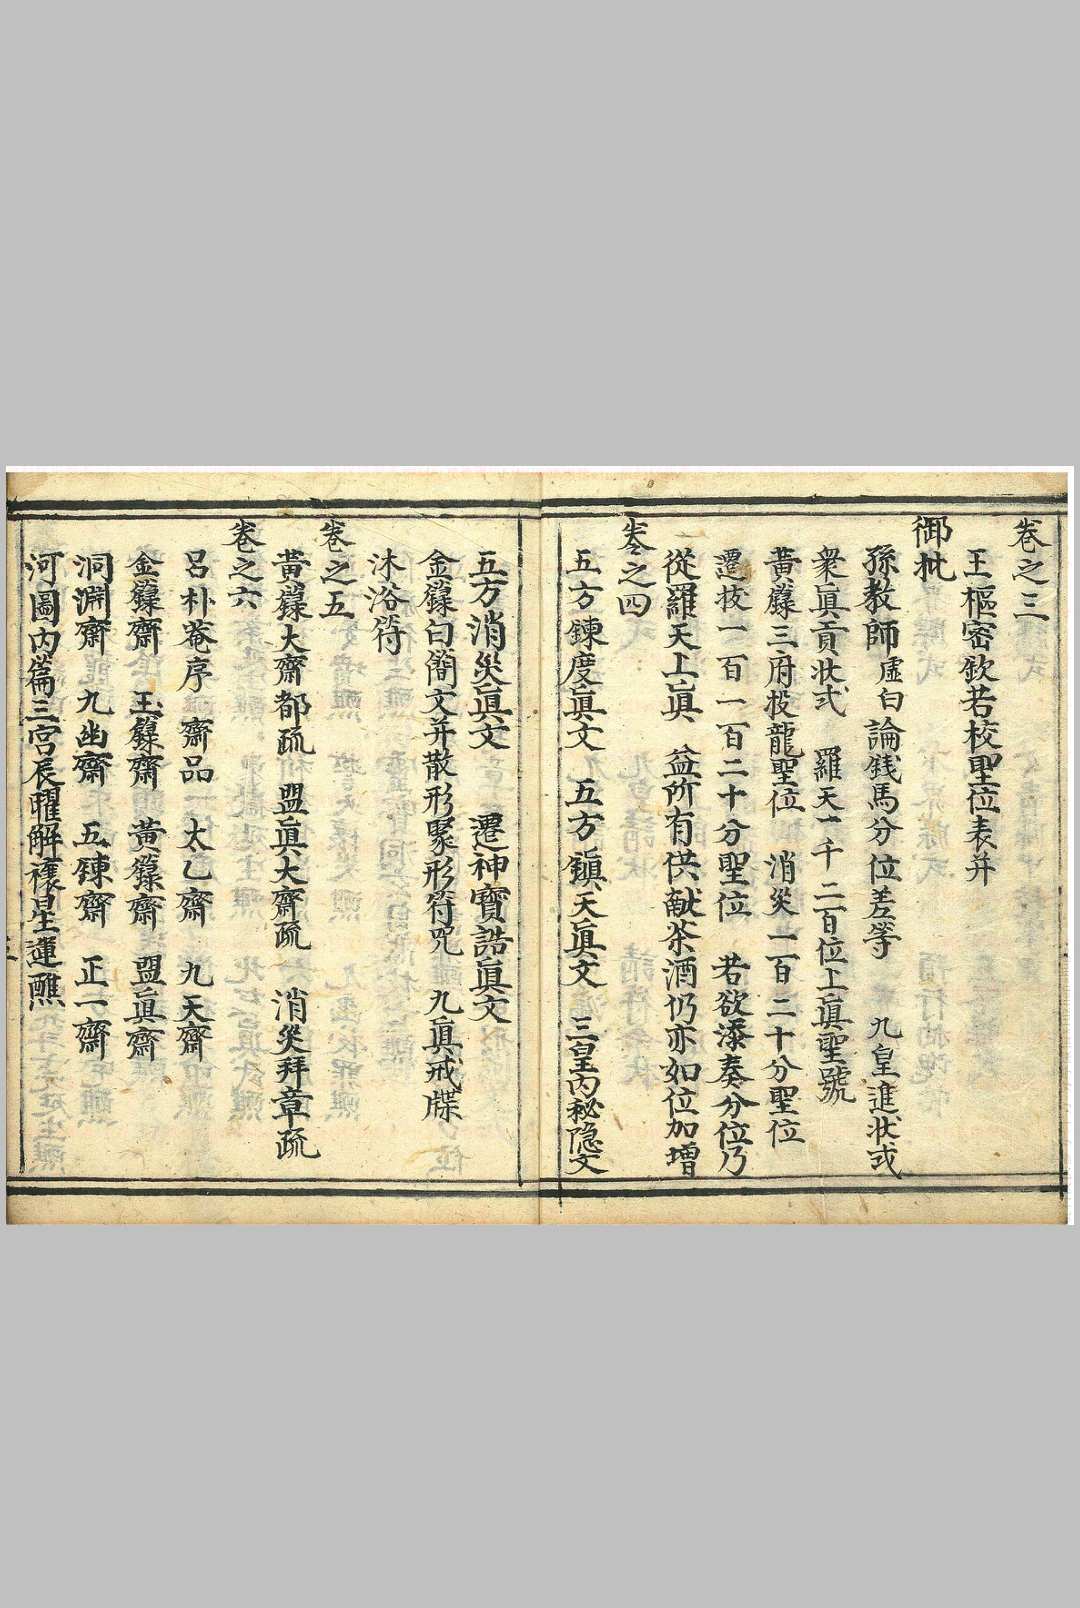 卷之三
王樞密欽若校聖位表并
御批
孫教師虛白論錢馬分位差等　九皇進狀式
衆眞貢狀式　羅天一千二百位上眞聖號
黃籙三府投龍聖位　消災一百二十分聖位
遷拔一百一百二十分聖位　若欲瀑奏分位乃
從羅天上眞　益所有供献茶酒仍亦如位加增
卷之四
五方鍊度眞文　五方鎭天眞文　三皇内秘隱文
五方消災眞文　遷神寶誥眞文
金籙白簡文并散形聚形符咒　九眞戒牒
沐浴符
卷之五
黃籙大齋都疏　盟眞大齋疏　消災拜章疏
卷之六
呂朴菴序　齋品　太乙齋　九天齋
金籙齋　玉籙齋　黃籙齋　盟眞齋
洞淵齋　九幽齋　五鍊齋　正一齋
河圖内篇三宫辰曜解禳星運醮